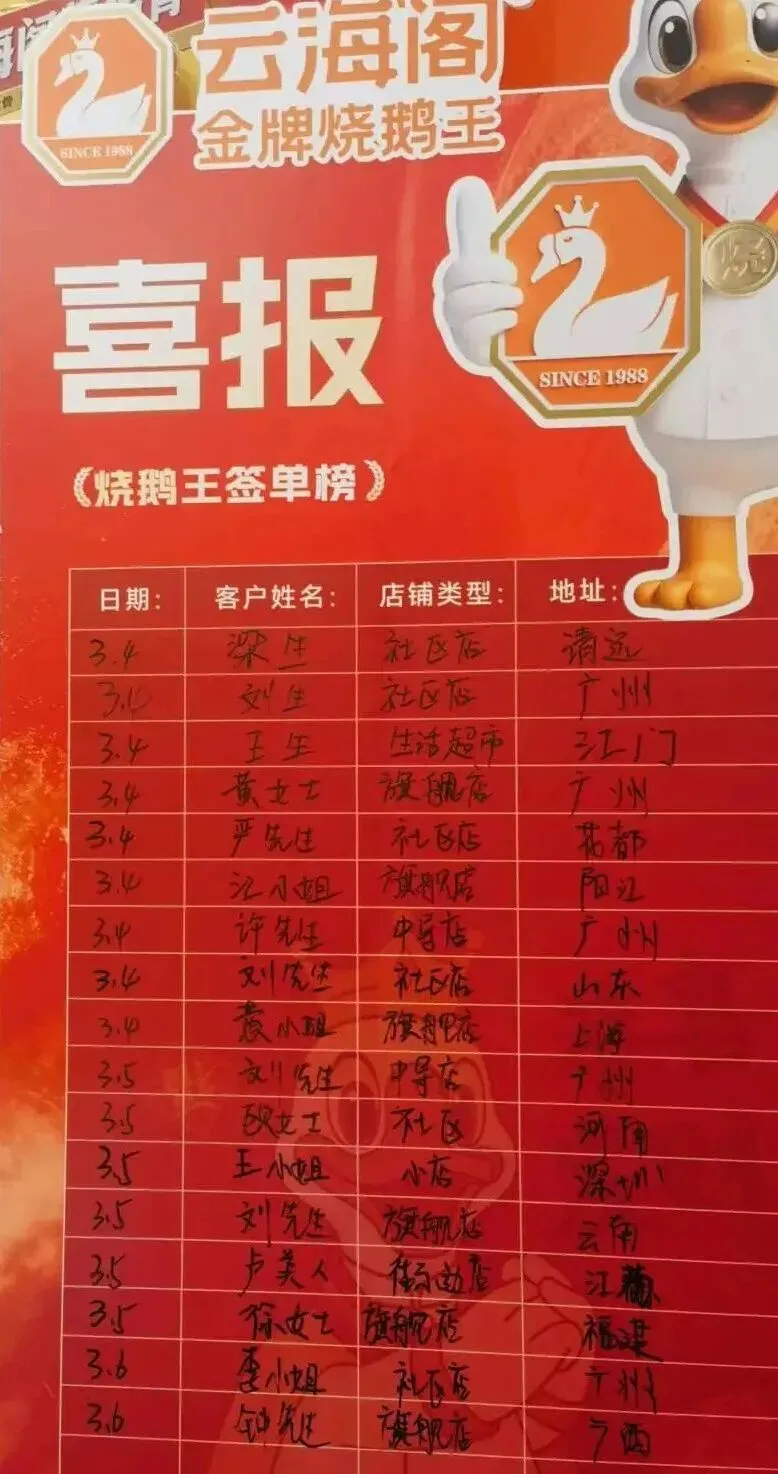 云海阁
金牌烧鹅王
SINCE 1988
烧
SINCE 1988
喜报
《烧鹅王签单榜》
日期: 客户姓名: 店铺类型: 地址:
3.4 梁生 社区店 清远
3.4 刘生 社区店 广州
3.4 王生 生活超市 江门
3.4 黄女士 旗舰店 广州
3.4 严先生 社区店 花都
3.4 江小姐 旗舰店 阳江
3.4 许先生 中导店 广州
3.4 刘先生 社区店 山东
3.4 袁小姐 旗舰店 上海
3.5 刘先生 中导店 广州
3.5 欧女士 社区 河南
3.5 王小姐 小店 深圳
3.5 刘先生 旗舰店 云南
3.5 卢美人 街边店 江苏
3.5 徐女士 旗舰店 福建
3.6 李小姐 社区店 广州
3.6 钟先生 旗舰店 广西